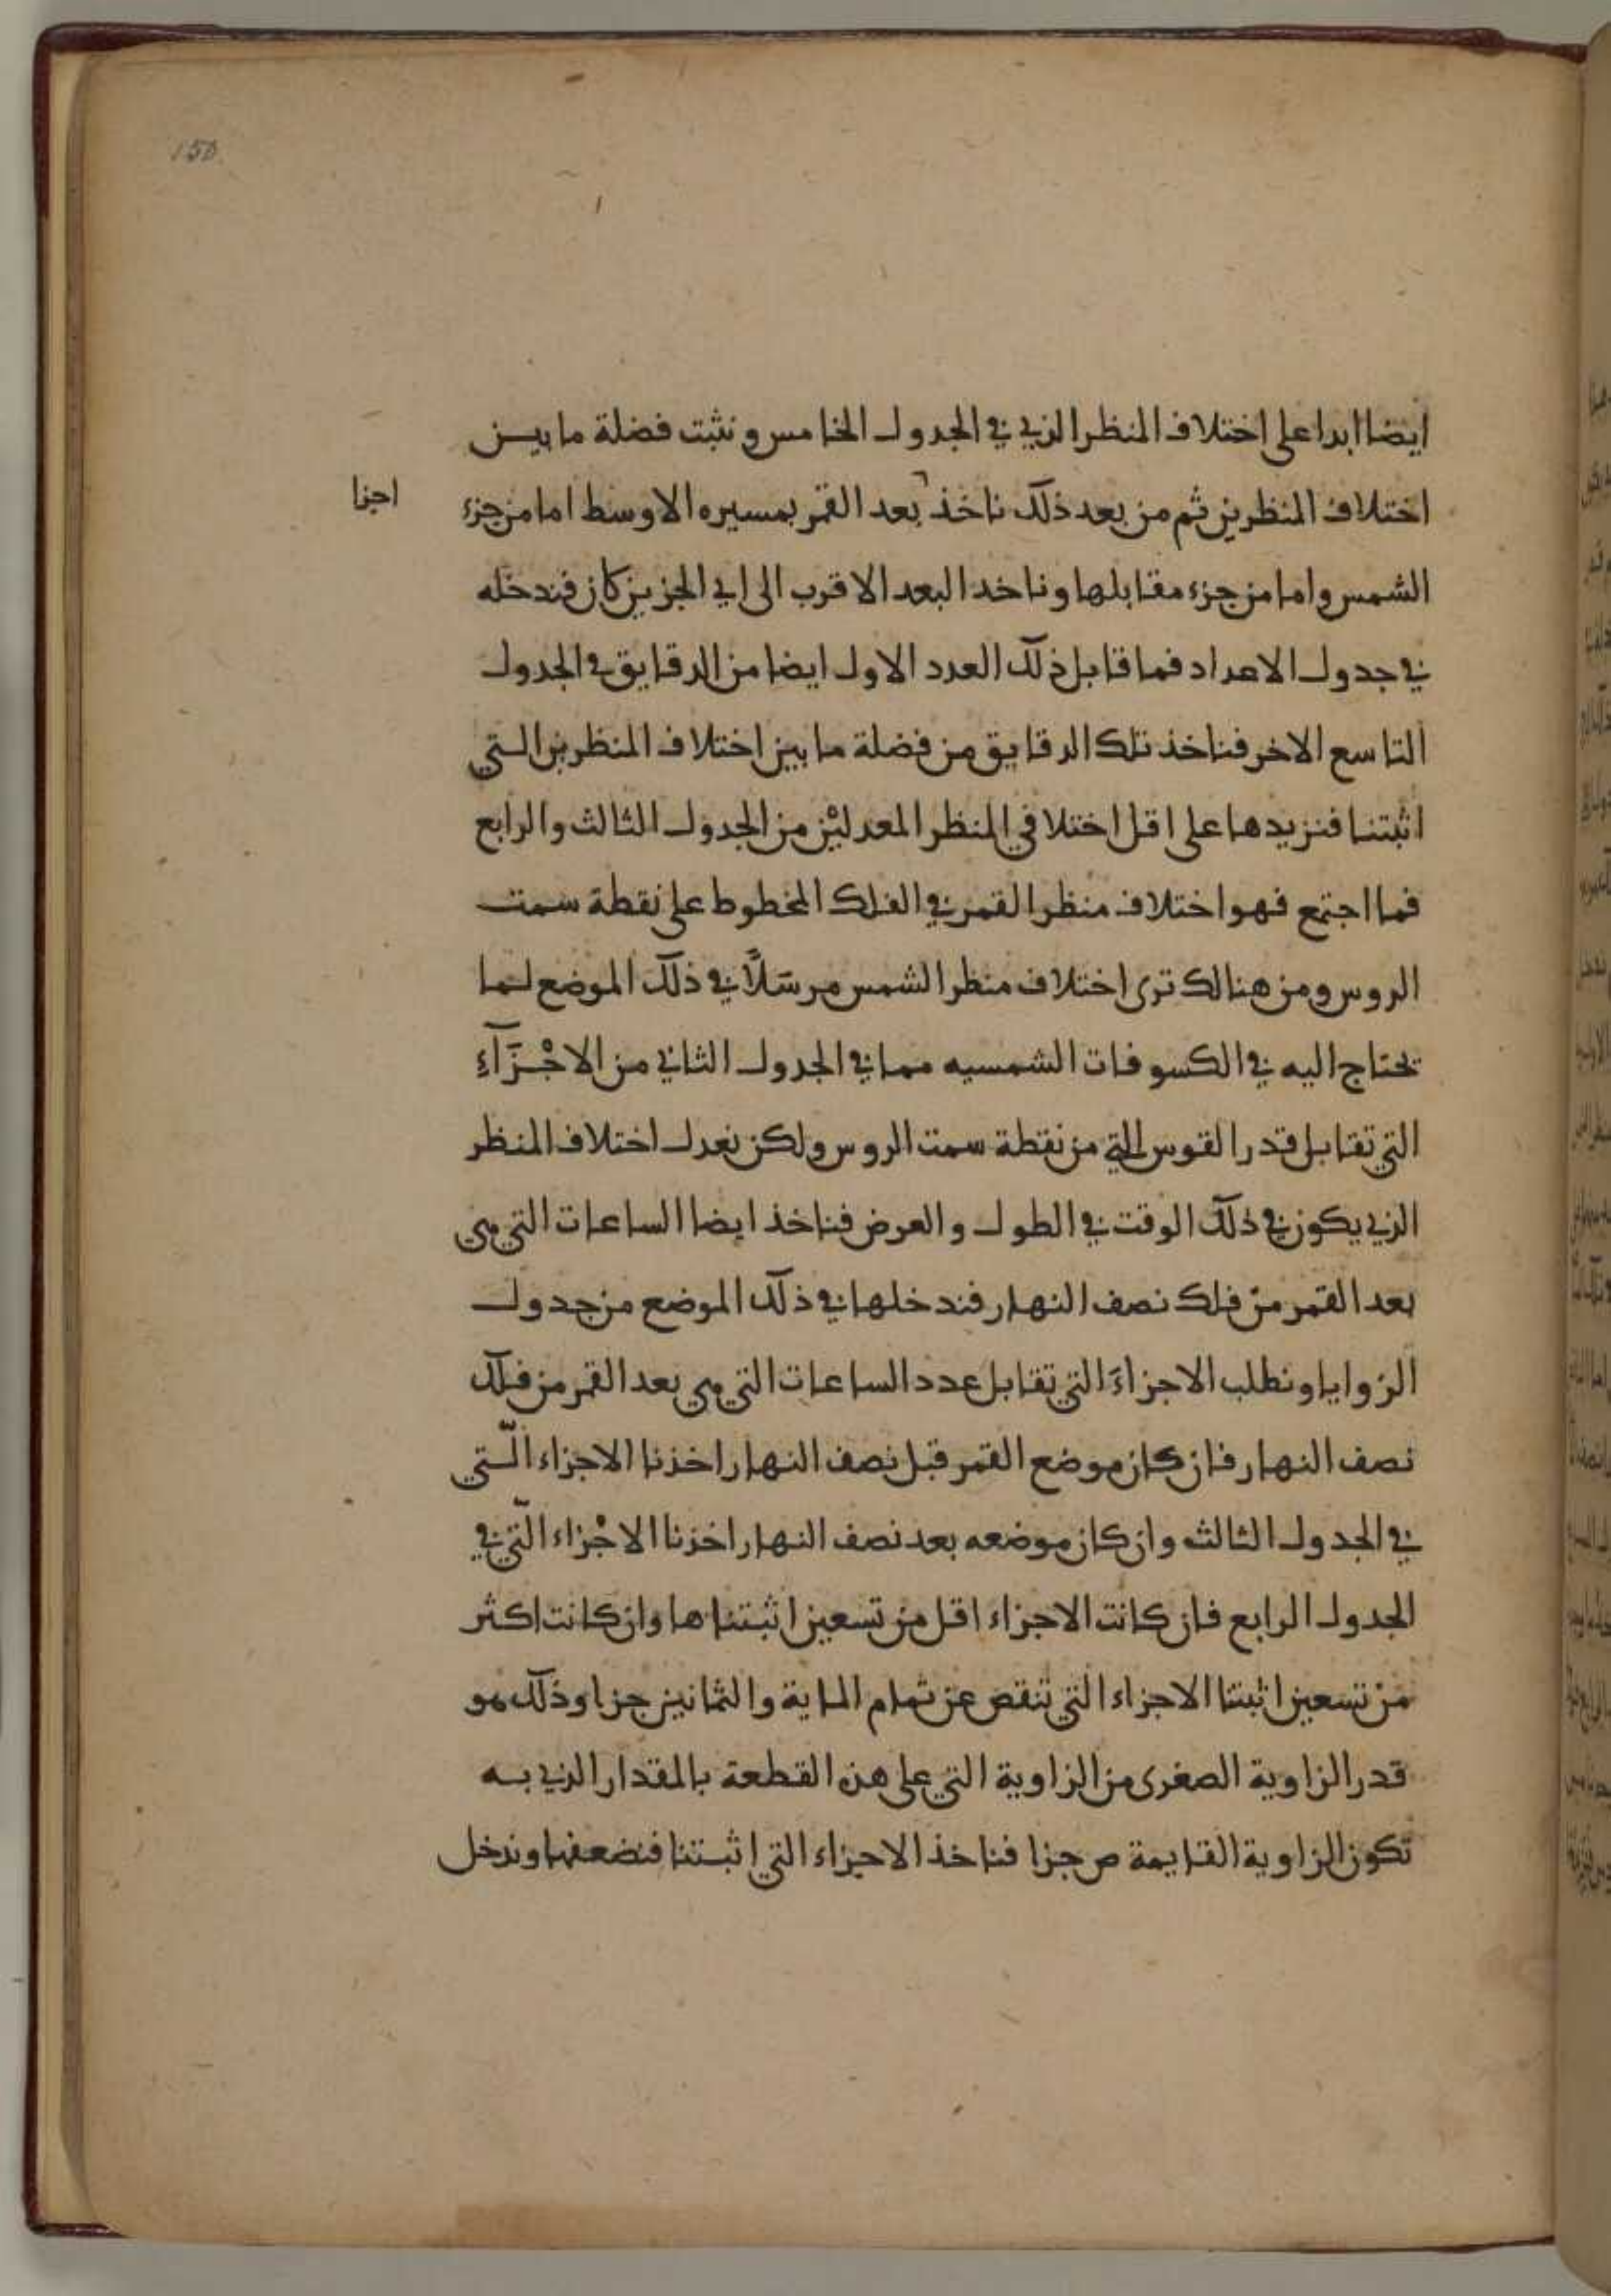 150
ايضا ابدا على اختلاف المنظر الذي في الجدول الخامس ونثبت فضلة ما بين
اختلاف المنظرين ثم من بعد ذلك ناخذ بعد القمر بمسيره الاوسط اما من جزء
اجزا
الشمس واما من جزء مقابلها وناخد البعد الاقرب الى اي الجزين كان فندخله
في جدول الاعداد فما قابل ذلك العدد الاول ايضا من الدقايق في الجدول
التاسع الاخر فناخذ تلك الدقايق من فضلة ما بين اختلاف المنظرين التي
اثبتنا فنزيدها على اقل اختلافي المنظر المعدلين من الجدول الثالث والرابع
فما اجتمع فهو اختلاف منظر القمر في الفلك المخطوط على نقطة سمت
الروس ومن هنالك ترى اختلاف منظر الشمس مرسَلًا في ذلك الموضع لما
يحتاج اليه في الكسوفات الشمسيه مما في الجدول الثاني من الاجْزَآءِ
التي تقابل قدر القوس التي من نقطة سمت الروس ولكن نعدل اختلاف المنظر
الذي يكون في ذلك الوقت في الطول والعرض فناخذ ايضا الساعات التي هي
بعد القمر من فلك نصف النهار فندخلها في ذلك الموضع من جدول
الزوايا ونطلب الاجزاءَ التي تقابل عدد الساعات التي هي بعد القمر من فلك
نصف النهار فان كان موضع القمر قبل نصف النهار اخذنا الاجزاء الّتي
في الجدول الثالث وان كان موضعه بعد نصف النهار اخذنا الاجْزاء الّتي في
الجدول الرابع فان كانت الاجزاء اقل من تسعين اثبتناها وان كانت اكثر
من تسعين اثبتنا الاجزاء التي تنقص عن تمام الماية والثمانين جزا وذلك هو
قدر الزاوية الصغرى من الزاوية التي على هذه القطعة بالمقدار الذي به
تكون الزاوية القايمة ص جزا فناخذ الاجزاء التي اثبتنا فنضعفها وندخل